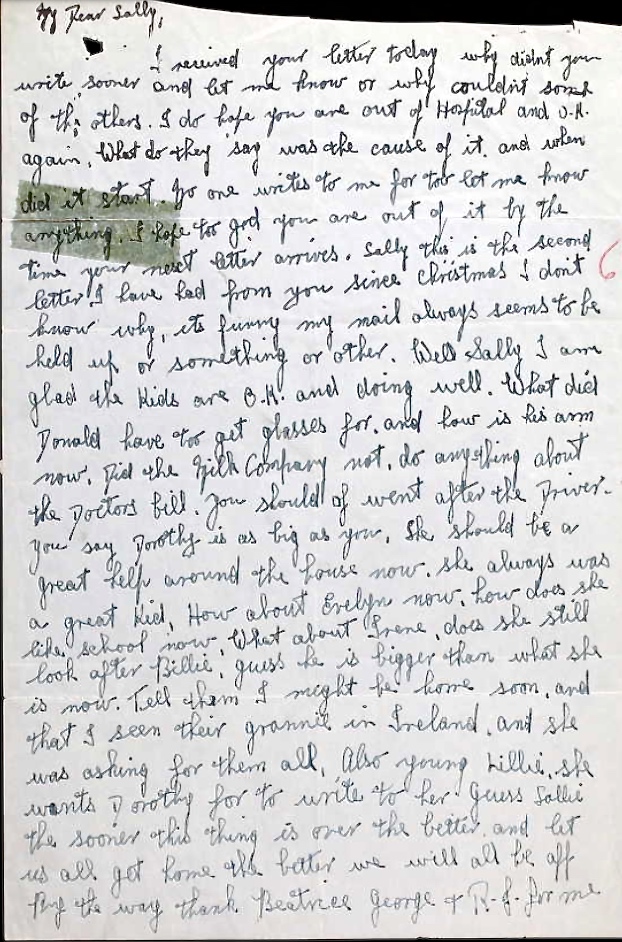 My Dear Sally,
I received your letter today why didnt you
write sooner and let me know or why couldnt some
of the others. I do hope you are out of Hospital and O.K.
again. What do they say was the cause of it. and when
did it start. No one writes to me for too let me know
anything. I hope too god you are out of it by the
time your next letter arrives. Sally this is the second
letter I have had from you since Christmas I don't
know why, its funny my mail always seems to be
held up or something or other. Well Sally I am
glad the Kids are O.K. and doing well. What did
Donald have too get glasses for. and how is his arm
now. Did the Milk Company not, do anything about
the Doctors bill. You should of went after the Driver.
you say Dorothy is as big as you, She should be a
great help around the house now. she always was
a great Kid, How about Evelyn now. how does she
like school now. What about Irene, does she still
look after Billie, guess he is bigger than what she
is now. Tell them I might be home soon, and
that I seen their grannie in Ireland, and she
was asking for them all, Also young Lillie, she
wants Dorothy for to write to her. Guess Sallie
the sooner this thing is over the better. and let
us all get home the better we will all be off
By the way thank Beatrice George & R.J. for me
6